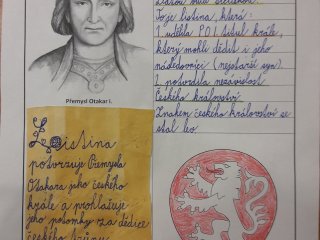 Přemysl Otakar I.
To je listina, která:
1. udělila P.O.I. titul krále,
který mohli dědit i jeho
následovníci (nejstarší syn).
2. potvrdila nezávislost
českého království.
Znakem českého království se
stal lev.
Listina
potvrzuje Přemysla
Otakara jako českého
krále a prohlašuje
jeho potomky za dědice
českého trůnu.